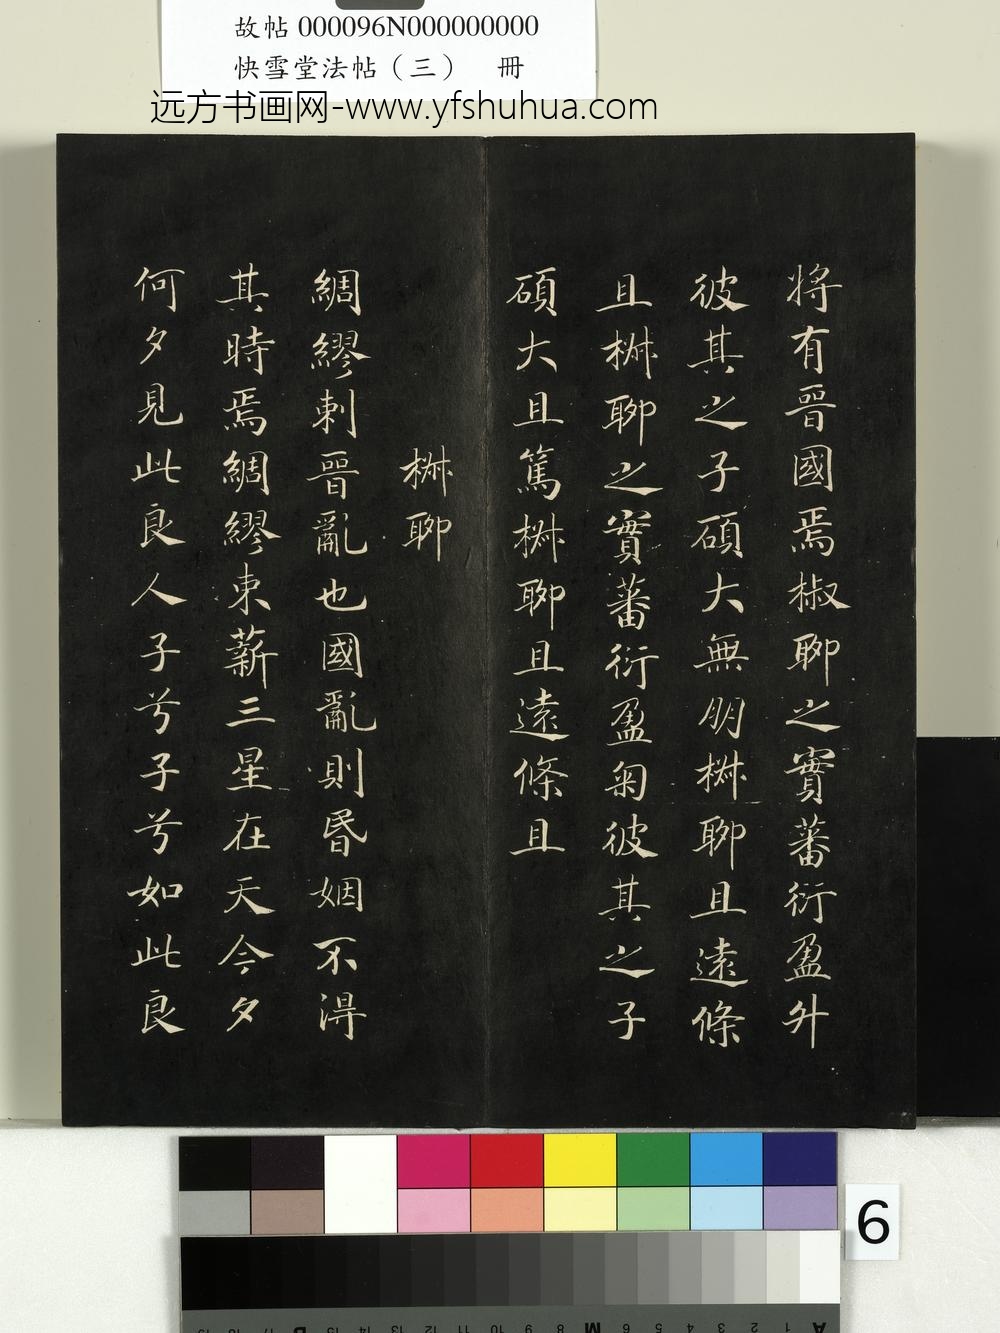 故帖 000096N000000000
快雪堂法帖（三） 冊
远方书画网-www.yfshuhua.com
將有晉國焉椒聊之實蕃衍盈升
彼其之子碩大無朋椒聊且遠條
且椒聊之實蕃衍盈匊彼其之子
碩大且篤椒聊且遠條且
椒聊
綢繆刺晉亂也國亂則昬姻不得
其時焉綢繆束薪三星在天今夕
何夕見此良人子兮子兮如此良
6